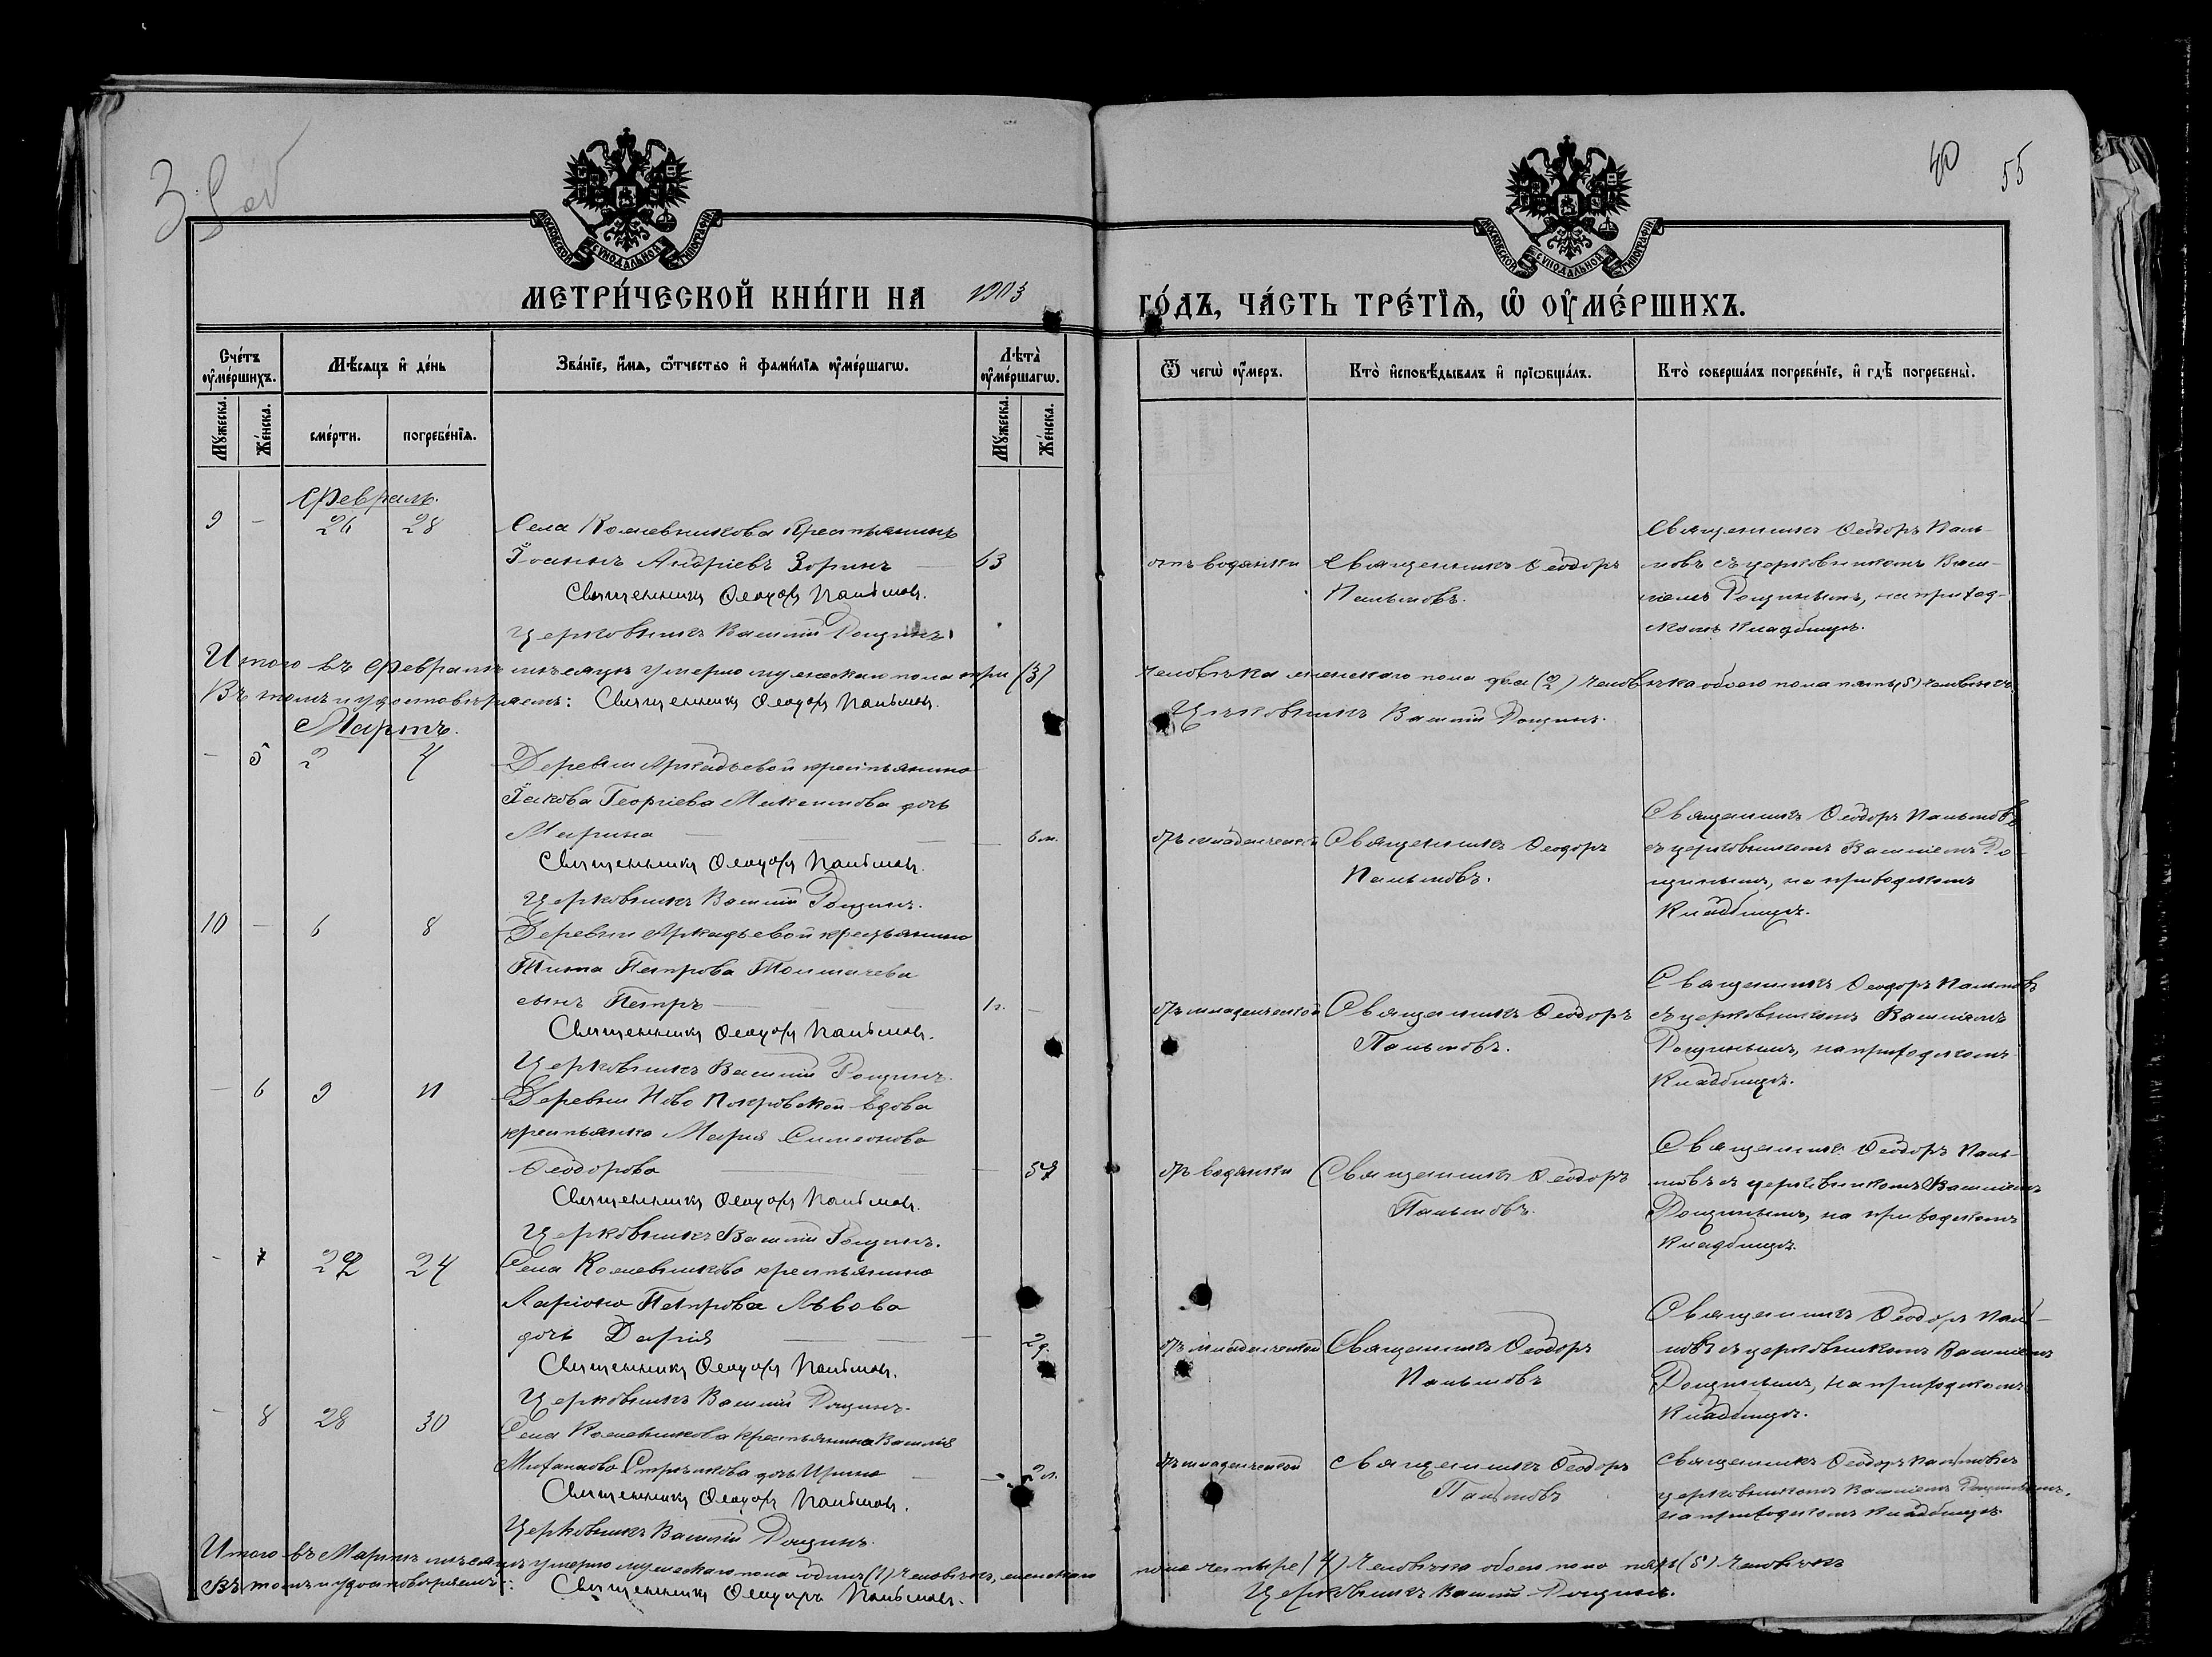 3. Gov
40 55
МОСКОВСКОЙ СѴНОДАЛЬНОЙ ТИПОГРАФІИ
МОСКОВСКОЙ СѴНОДАЛЬНОЙ ТИПОГРАФІИ
МЕТРИ́ЧЕСКОЙ КНИ́ГИ НА 1903
ГО́ДЪ, ЧА́СТЬ ТРЕ́ТЇѦ, Ѡ ОУ҆МЕ́РШИХЪ.
Сче́тъ оу҆ме́ршихъ.
Мѣ́сѧцъ и҆ де́нь
Зва́нїе, и҆́мѧ, ѻ҆́тчество и҆ фами́лїѧ оу҆ме́ршагѡ.
Лѣта̀ оу҆ме́ршагѡ.
Ѿ чегѡ̀ оу҆́меръ.
Кто̀ и҆сповѣ́дывалъ и҆ прїѡбща́лъ.
Кто̀ соверша́лъ погребе́нїе, и҆ гдѣ̀ погребены̀.
Мꙋ́жеска. Же́нска. сме́рти. погребе́нїѧ. Мꙋ́жеска. Же́нска.
Февраль.
9 - 26 28 Села Кожевникова крестьянинъ
Іоаннъ Андріевъ Зоринъ — 63
Священникъ Ѳеодоръ Пальмовъ.
Церковникъ Василій Рощинъ.
отъ водянки Священникъ Ѳеодоръ
Пальмовъ.
Священникъ Ѳеодоръ Паль-
мовъ съ церковникомъ Васи-
ліемъ Рощинымъ, на приход-
скомъ кладбищѣ.
Итого въ Февралѣ мѣсяцѣ умерло мужеска пола три (3)
человѣка женскаго пола два (2) человѣка обоего пола пять (5) человѣкъ.
Въ томъ и удостовѣряемъ: Священникъ Ѳеодоръ Пальмовъ.
Церковникъ Василій Рощинъ.
Мартъ.
- 5 2 4 Деревни Аркадьевой крестьянина
Іакова Георгіева Максимова дочь
Марина — — — 6 м.
Священникъ Ѳеодоръ Пальмовъ.
Церковникъ Василій Рощинъ.
отъ младенческой Священникъ Ѳеодоръ
Пальмовъ.
Священникъ Ѳеодоръ Пальмовъ
съ церковникомъ Василіемъ Ро-
щинымъ, на приходскомъ
кладбищѣ.
10 - 6 8 Деревни Аркадьевой крестьянина
Тита Петрова Толмачева
сынъ Петръ — — 1 г. -
Священникъ Ѳеодоръ Пальмовъ.
Церковникъ Василій Рощинъ.
отъ младенческой Священникъ Ѳеодоръ
Пальмовъ.
Священникъ Ѳеодоръ Пальмовъ
съ церковникомъ Василіемъ
Рощинымъ, на приходскомъ
кладбищѣ.
- 6 9 11 Деревни Ново Покровской вдова
крестьянка Марія Симеонова
Ѳеодорова — — — 57
Священникъ Ѳеодоръ Пальмовъ.
Церковникъ Василій Рощинъ.
отъ водянки Священникъ Ѳеодоръ
Пальмовъ.
Священникъ Ѳеодоръ Паль-
мовъ съ церковникомъ Василіемъ
Рощинымъ, на приходскомъ
кладбищѣ.
- 7 22 24 Села Кожевниково крестьянина
Ларіона Петрова Львова
дочь Дарія — — — 2 д.
Священникъ Ѳеодоръ Пальмовъ.
Церковникъ Василій Рощинъ.
отъ младенческой Священникъ Ѳеодоръ
Пальмовъ
Священникъ Ѳеодоръ Паль-
мовъ съ церковникомъ Василіемъ
Рощинымъ, на приходскомъ
кладбищѣ.
- 8 28 30 Села Кожевникова крестьянина Василія
Михаилова Стрѣлкова дочь Ирина — -
Священникъ Ѳеодоръ Пальмовъ.
Церковникъ Василій Рощинъ.
отъ младенческой Священникъ Ѳеодоръ
Пальмовъ
Священникъ Ѳеодоръ Пальмовъ съ
церковникомъ Василіемъ Рощинымъ,
на приходскомъ кладбищѣ.
Итого въ Мартѣ мѣсяцѣ умерло мужескаго пола одинъ (1) человѣкъ, женскаго
пола четыре (4) человѣка обоего пола пять (5) человѣкъ
Въ томъ и удостовѣряемъ: Священникъ Ѳеодоръ Пальмовъ.
Церковникъ Василій Рощинъ.